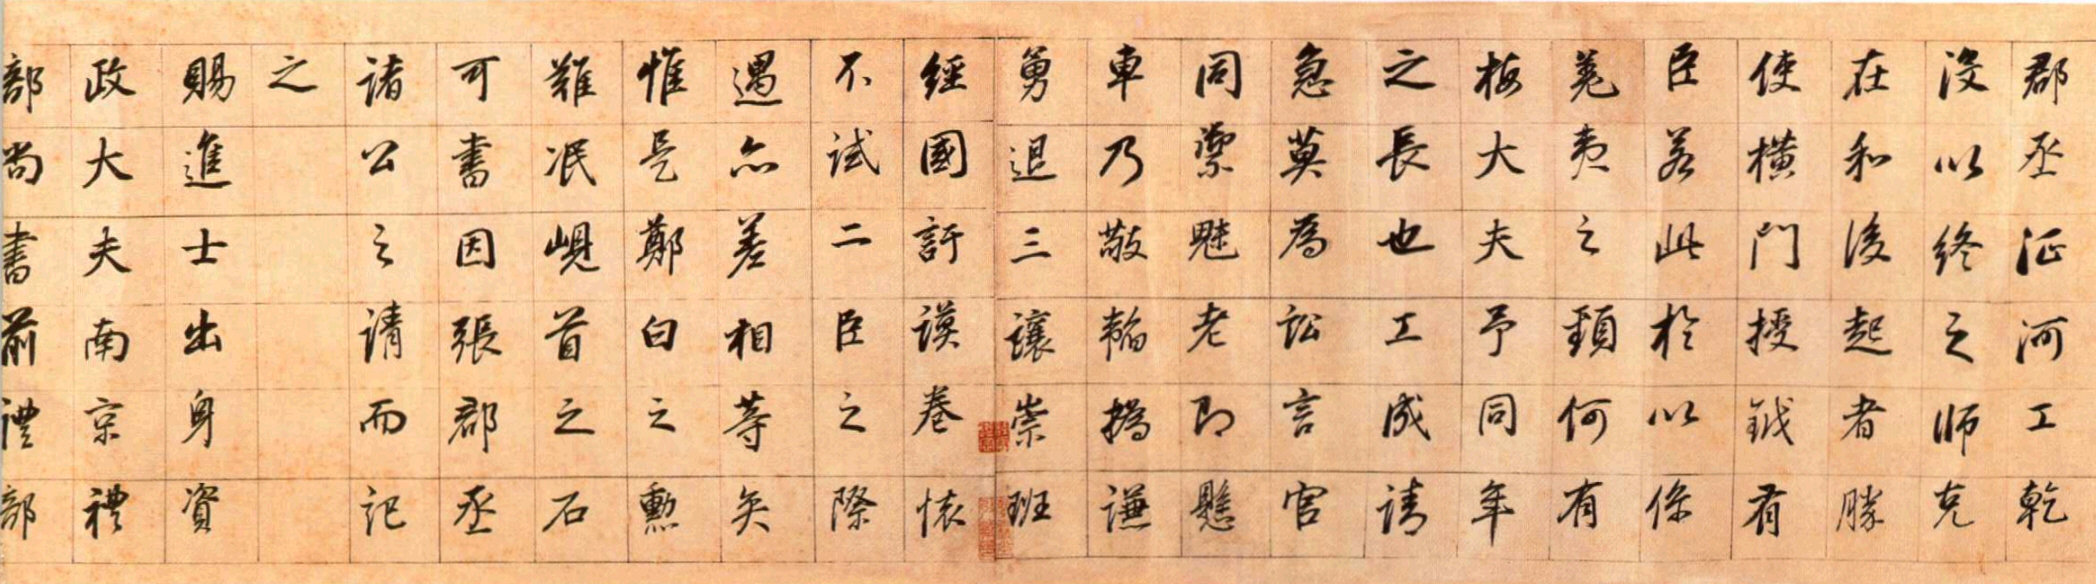 郡丞征河工乾
没以终之师克
在和後起者勝
使橫門授鉞有
臣若此於以係
羌夷之頸何有
梅大夫予同年
之長也工成请
急莫為訟言官
同禦魅老即懸
車乃敬韜撝谦
勇退三讓崇班
經國訏謨卷懷
不試二臣之際
遇亦差相等矣
惟是鄭白之勳
難泯峴首之石
可書因張郡丞
諸公之请而記
之
賜進士出身資
政大夫南京禮
部尚書前禮部